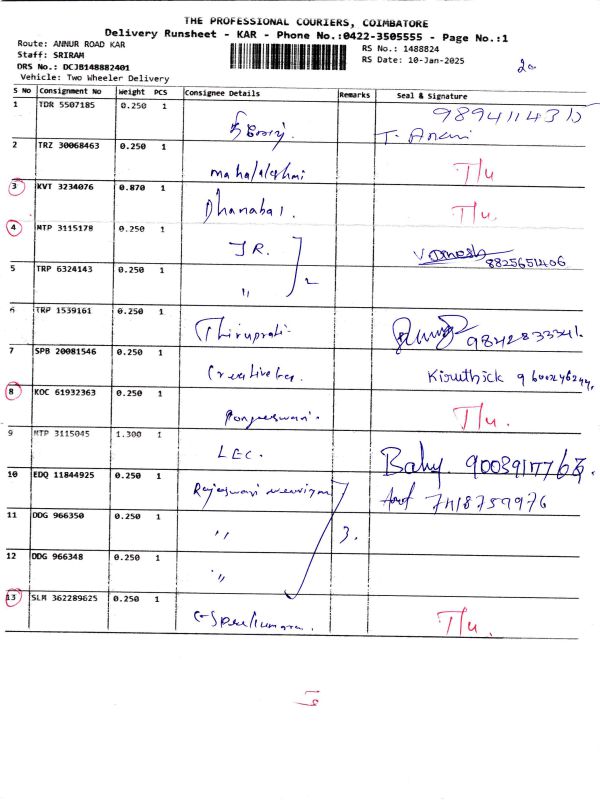 THE PROFESSIONAL COURIERS, COIMBATORE
Delivery Runsheet - KAR - Phone No.:0422-3505555 - Page No.:1
Route: ANNUR ROAD KAR
RS No.: 1488824
Staff: SRIRAM
RS Date: 10-Jan-2025
DRS No.: DCJB148882401
Vehicle: Two Wheeler Delivery
20
S No Consignment No Weight PCS Consignee Details Remarks Seal & Signature
1 TDR 5507185 0.250 1
T. Anani
2 TRZ 30068463 0.250 1
mahalakshmi T/u
3 KVT 3234076 0.870 1
Dhanabal. T/u.
4 MTP 3115178 0.250 1
JR. 8825651406
5 TRP 6324143 0.250 1
" 2
6 TRP 1539161 0.250 1
9842833341.
7 SPB 20081546 0.250 1
Kiruthick
8 KOC 61932363 0.250 1
T/u.
9 MTP 3115045 1.300 1
LEC.
10 EDQ 11844925 0.250 1
Rajeswari 7418759976
11 DDG 966350 0.250 1
" 3.
12 DDG 966348 0.250 1
"
13 SLM 362289625 0.250 1
T/u.